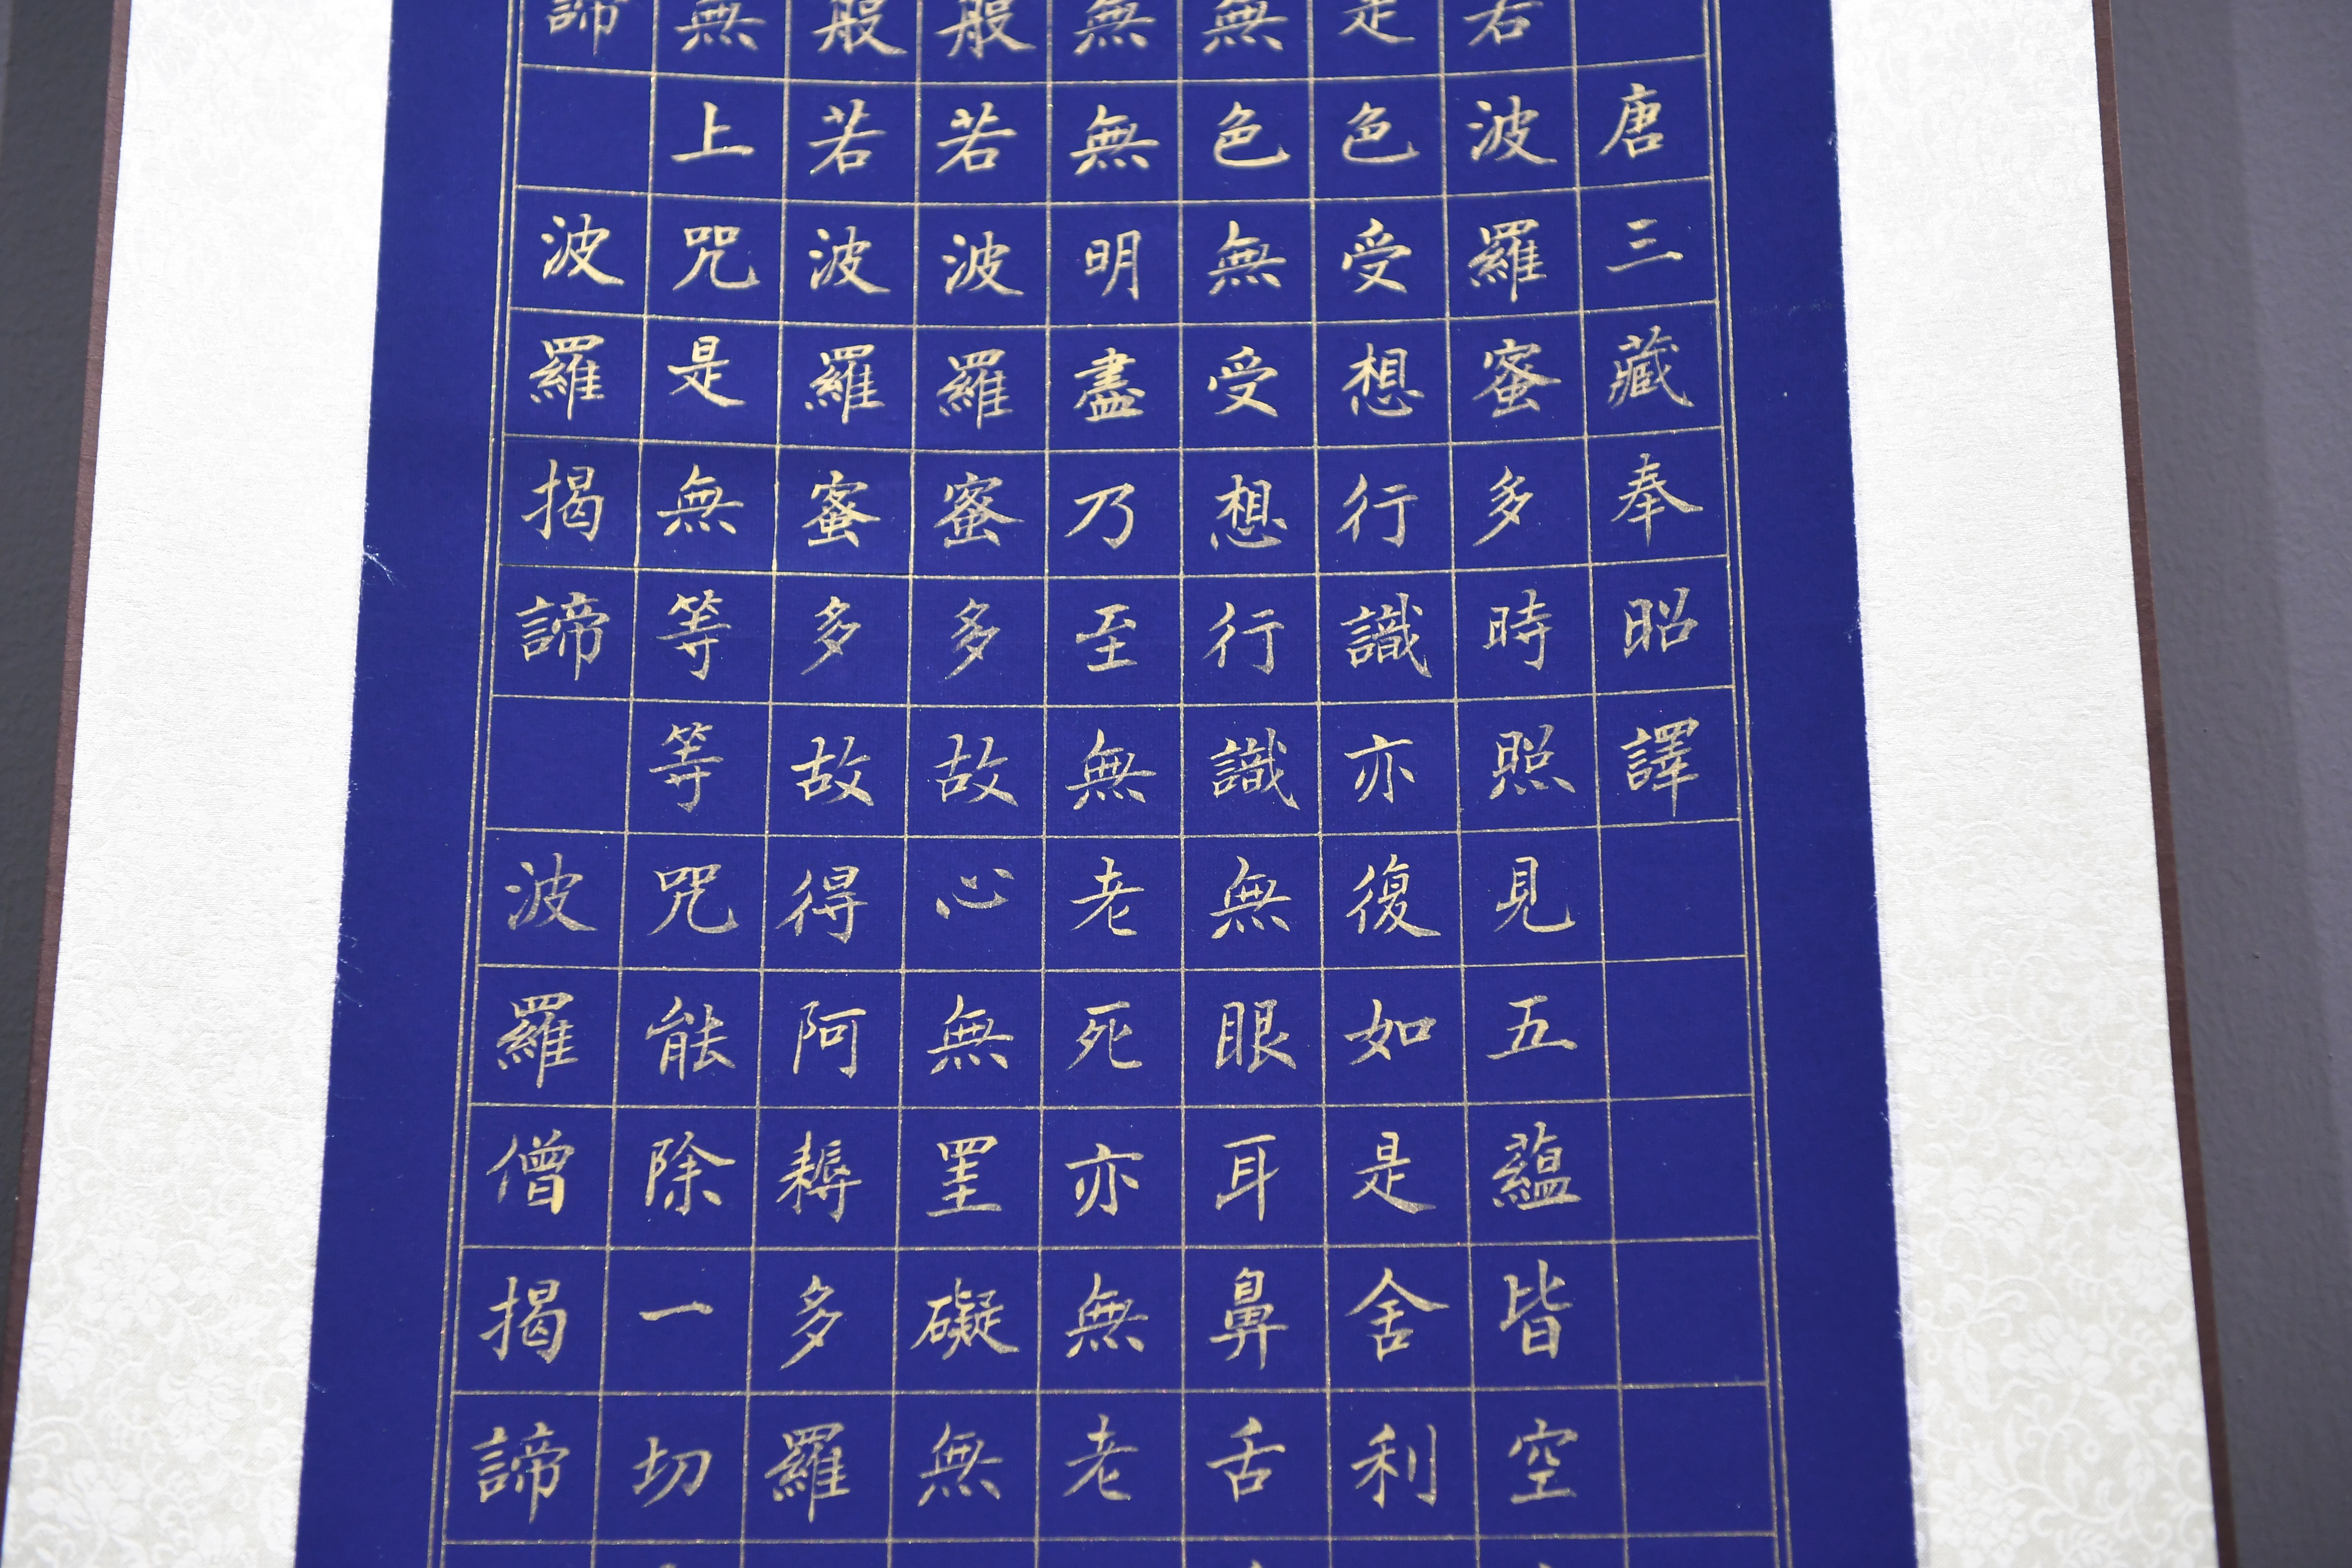 唐三藏奉昭譯
若波羅蜜多時照見五蘊皆空
是色受想行識亦復如是舍利
無色無受想行識無眼耳鼻舌
無無明盡乃至無老死亦無老
般若波羅蜜多故心無罣礙無
般若波羅蜜多故得阿耨多羅
無上咒是無等等咒能除一切
諦 波羅揭諦 波羅僧揭諦